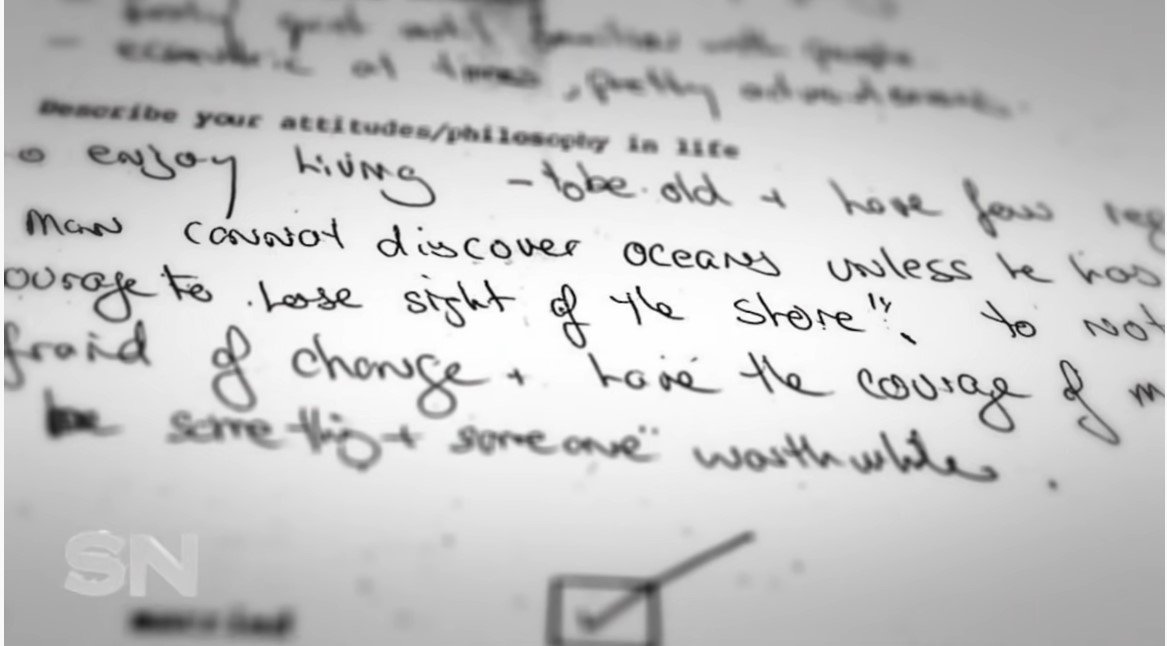 quiet until familiar with people
eccentric at times, pretty adventurous.
Describe your attitudes/philosophy in life
o enjoy living - to be old + have few reg
man cannot discover oceans unless he has
ourage to lose sight of the shore". to not
fraid of change + have the courage of m
be something + someone" worthwhile.
SN
married